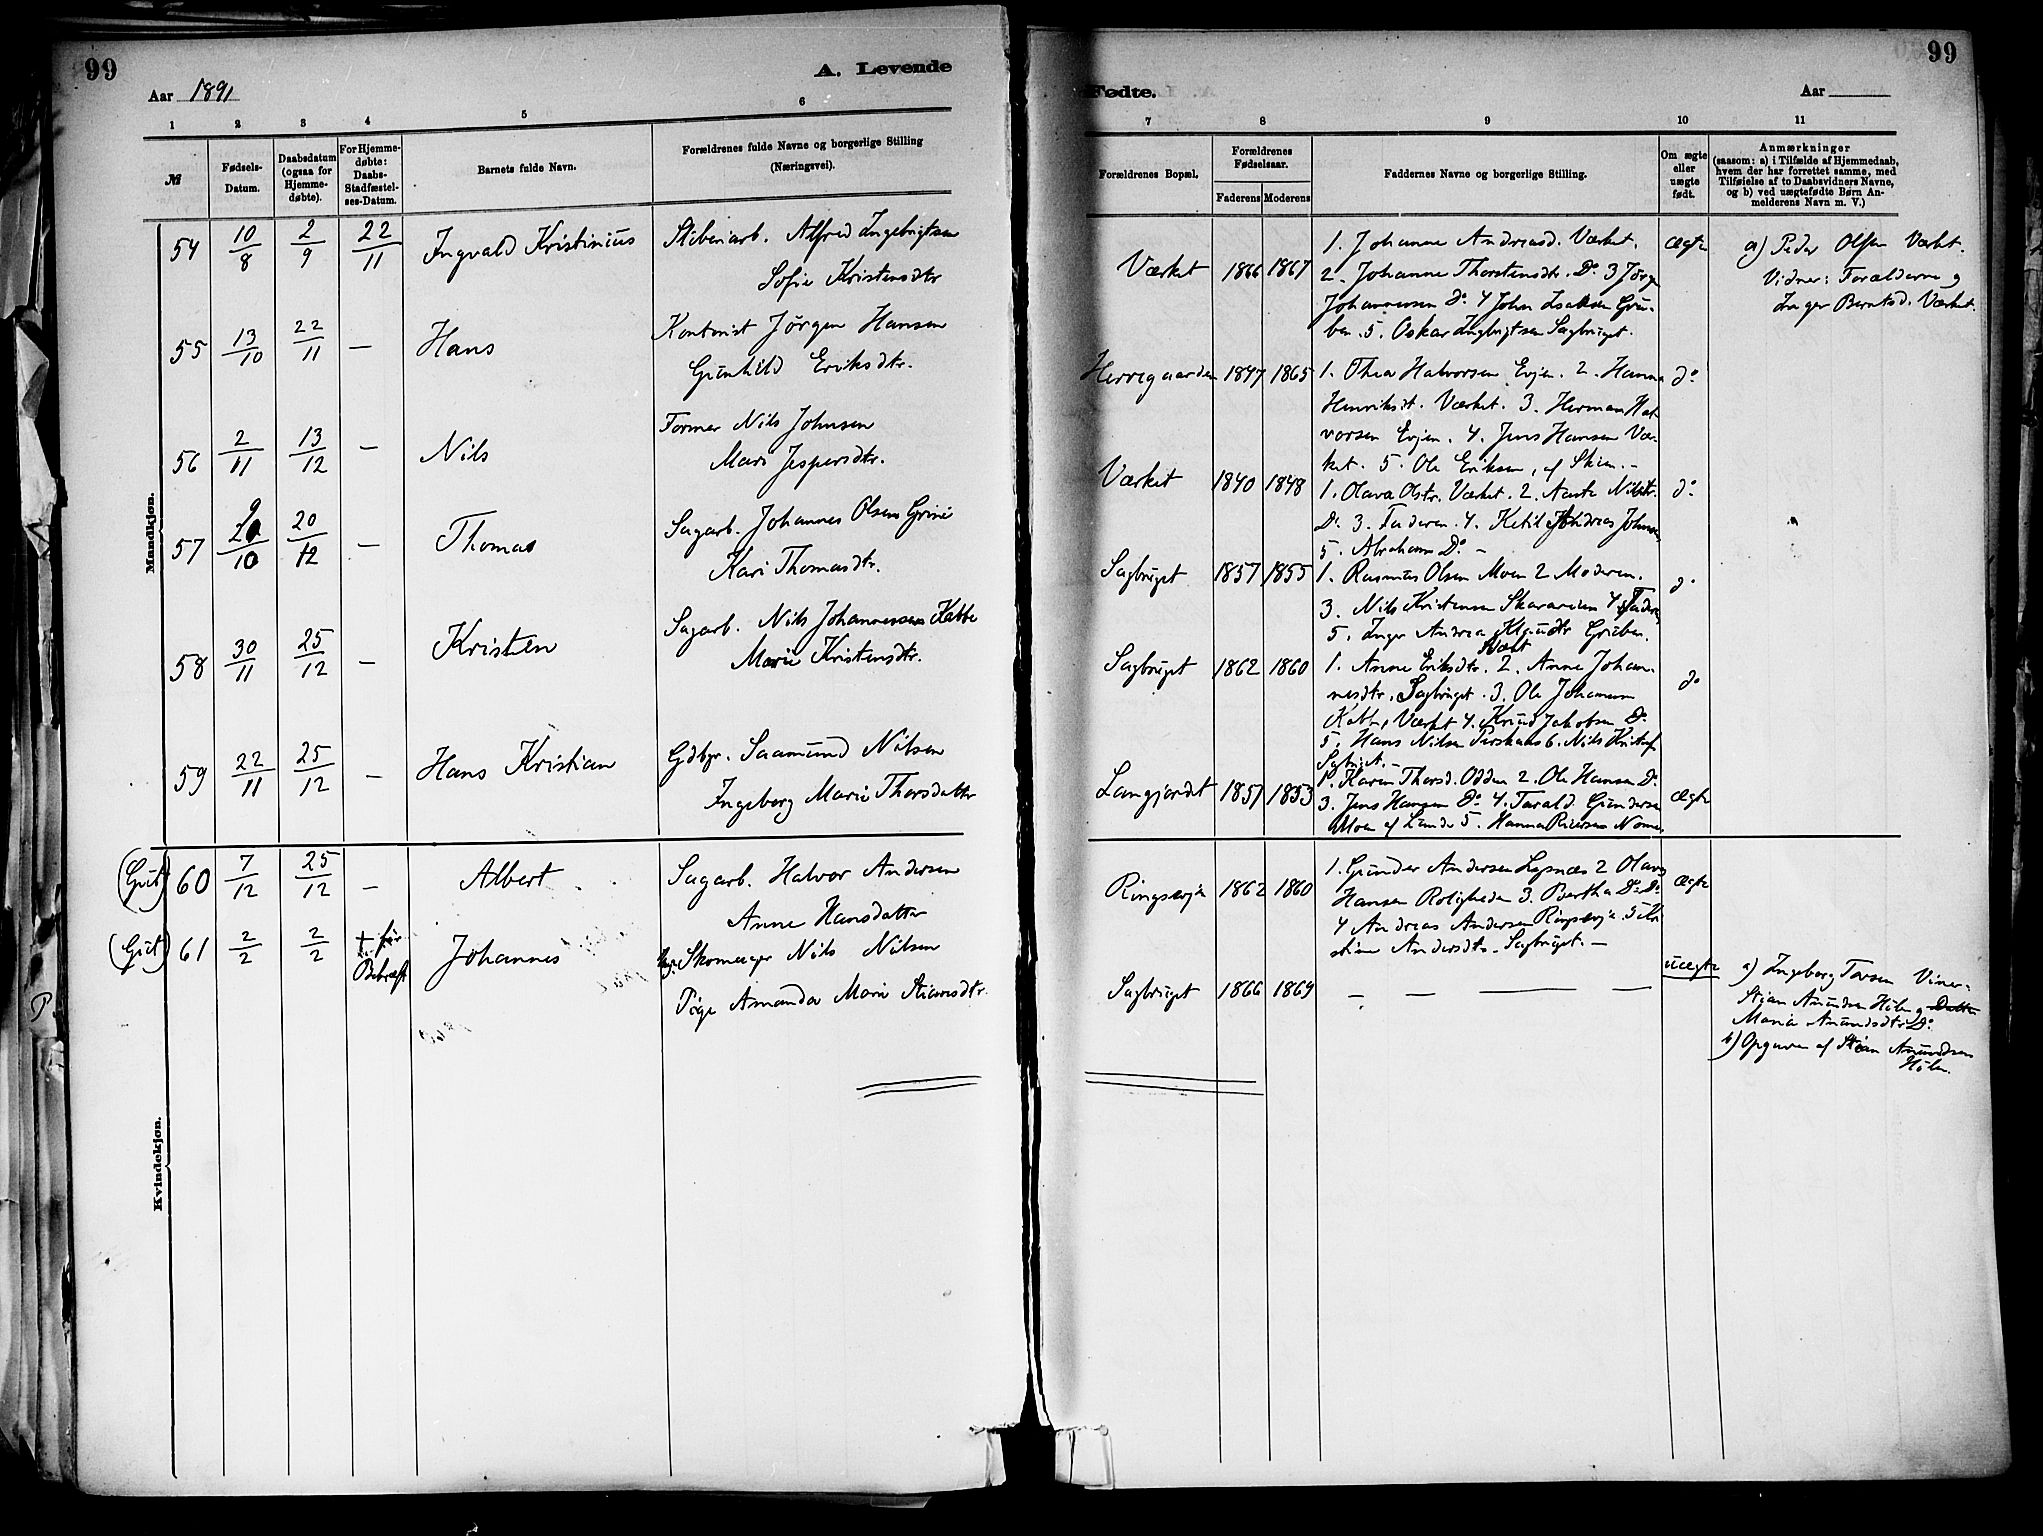 99
A. Levende
Aar 1891
1 2 3 4 5 6
№
Fødsels-
Datum.
Daabsdatum
(ogsaa for
Hjemme-
døbte).
For Hjemme-
døbte:
Daabs-
Stadfæstel-
ses-Datum.
Barnets fulde Navn.
Forældrenes fulde Navne og borgerlige Stilling
(Næringsvei).
Mandkjøn.
54 10/8 2/9 22/11 Ingvald Kristinius
Alfred Ingebrigtsen
Sofie Kristensdtr
55 13/10 22/11 — Hans
Kontorist Jørgen Hansen
Gunhild Eriksdtr.
56 2/11 13/12 — Nils
Former Nils Johnsen
Mari Jespersdtr.
57 10 20/12 — Thomas
Sagarb. Johannes Olsen Grini
Kari Thomasdtr.
58 30/11 25/12 — Kristen
Sagarb. Nils Johannessen Katte
Marie Kristensdtr.
59 22/11 25/12 — Hans Kristian
Gdbgr. Saamund Nilsen
Ingeborg Marie Thorsdatter
(Gut) 60 7/12 25/12 — Albert
Sagarb. Halvor Andersen
Anne Hansdatter
(Gut) 61 2/2 2/2 + før
Bekræft
Johannes
Skomager Nils Nilsen
Pige Amanda Marie Stiansdtr.
Kvindekjøn.
99
Fødte.
Aar
7 8 9 10 11
Forældrenes Bopæl.
Forældrenes
Fødselsaar.
Faderens Moderens
Faddernes Navne og borgerlige Stilling.
Om ægte
eller
uægte
født.
Anmærkninger
(saasom: a) i Tilfælde af Hjemmedaab,
hvem der har forrettet samme, med
Tilføielse af to Daabsvidners Navne,
og b) ved uægtefødte Børn An-
melderens Navn m. V.)
Værket 1866 1867
1. Johanne Andreasd. Værket.
2. Johanne Thorstensdtr. Do 3 Jørgen
Johannesen Do 4 John Isaksen Gru-
ben. 5. Oskar Ingbrigtsen Sagbruget.
Ægte
a) Peder Olsen Værket.
Vidner: Forældrene og
Inger Berntsd. Værket.
Herregaarden 1847 1865
1. Thea Halvorsen Evjen. 2. Hanna
Henriksdt. Værket. 3. Herman Hal-
vorsen Evjen. 4. Jens Hansen Vær-
ket. 5. Ole Eriksen, af Skien. -
do
Værket 1840 1848
1. Olava Olstr. Værket. 2. Aaste Nilsdtr.
Do 3. Faderen. 4. Ketil Andreas Johnsen
5. Abraham Do —
do
Sagbruget 1857 1855
1. Rasmus Olsen Moen 2 Moderen.
3. Nils Kristensen 4 Faderen
5. Inger Andrea Gruben.
do
Sagbruget 1862 1860
1. Anne Eriksdtr. Værket 2. Anne Johan-
nesdtr. Sagbruget. 3. Ole Johannesen
Katte, Værket 4. Knud Jakobsen Do
5. Hans Nilsen 6. Nils Kristof
Sagbruget. -
do
Langjordet 1857 1853
1. Karen Thorsd. Odden 2. Ole Hansen Do
3. Jens Hansen Do 4. Tarald Gundersen
Moen af Lunde 5. Hanna Nome
Ægte
Ringsevja 1862 1860
1. Gunder Andersen Lysnæs 2 Olava
Hansen Roligheden 3. Berthe Do Do
4 Andreas Andersen Ringsevja 5 Kri-
stine Andersdtr. Sagbruget. —
Ægte
Sagbruget 1866 1869
— — — —
uægte
a) Ingeborg Torsen
Stian Amundsen Hølen og
Maria Amundsdtr Do
b) Opgaven af Stian Amundsen
Hølen.